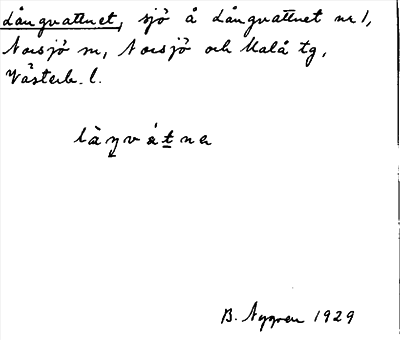 Långvattnet, sjö å Långvattnet nr 1,
Norsjö sn, Norsjö och Malå tg,
Västerb. l.
làŋvátnɐ
B. Nygren 1929